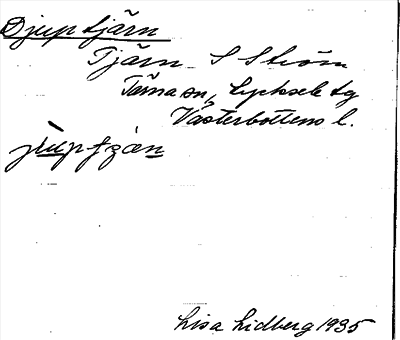 Djuptjärn
Tjärn S Ström
Tärna sn, Lycksele tg
Västerbottens l.
Lisa Lidberg 1935